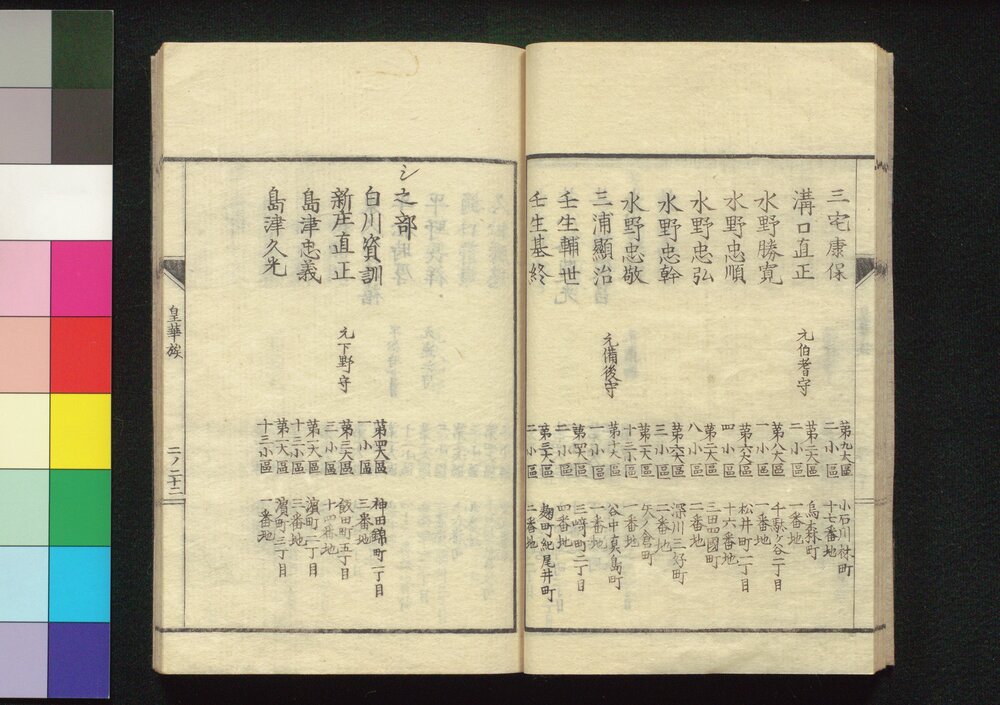 三宅康保 第九大區二小區 小石川林町十七番地
溝口直正 元伯耆守 第二大區二小區 烏森町一番地
水野勝寛 第八大區一小區 千駄ヶ谷一丁目一番地
水野忠順 第六大區四小區 松井町一丁目十六番地
水野忠弘 第二大區八小區 三田四國町二番地
水野忠幹 第六大區三小區 深川三好町二番地
水野忠敬 第五大區十三小區 矢ノ倉町一番地
三浦顯治 元備後守 第十大區一小區 谷中真島町一番地
壬生輔世 第四大區二小區 三﨑町二丁目四番地
壬生基終 第三大區二小區 麹町紀尾井町二番地
シ之部
白川資訓 第四大區一小區 神田錦町一丁目三番地
新庄直正 元下野守 第三大區三小區 飯田町五丁目十四番地
島津忠義 第一大區十三小區 濵町二丁目三番地
島津久光 第一大區十三小區 濵町三丁目一番地
皇華族 二ノ二十二